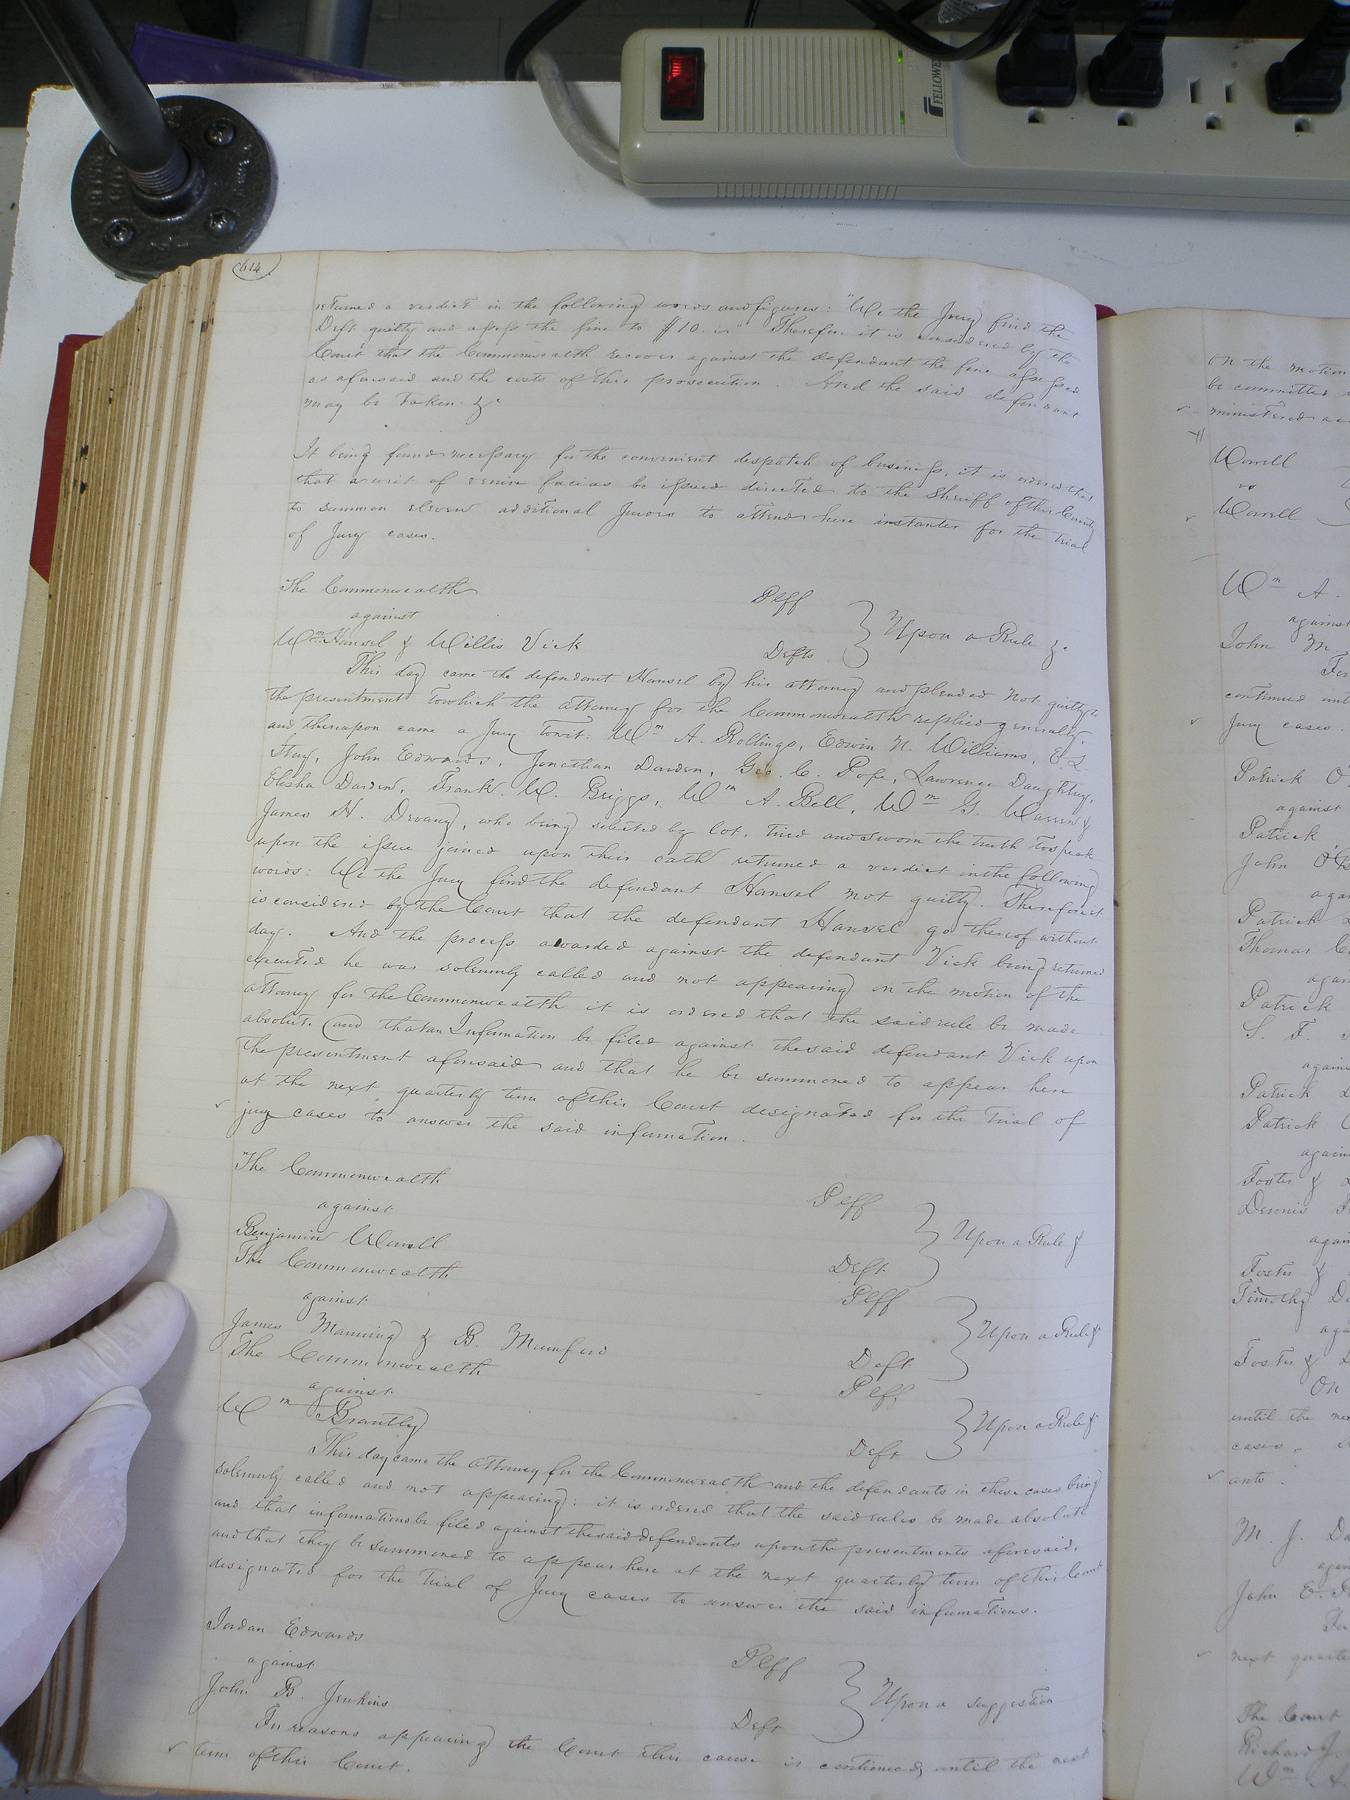 FELLOWES
614
returned a verdict in the following words and figures: "We the Jury find the
Deft guilty and assess the fine to $10. Therefore it is considered by the
Court that the Commonwealth recover against the defendant the fine assessed
as aforesaid and the costs of this prosecution. And the said defendant
may be taken &c
It being found necessary for the convenient despatch of business, it is ordered that
that a writ of venire facias be issued directed to the Sheriff of this County
to summon eleven additional Jurors to attend here instanter for the trial
of Jury cases.
The Commonwealth Plff
against
Wm Hansel & Willis Vick Defts } Upon a Rule &c
This day came the defendant Hansel by his attorney and pleaded not guilty to
the presentment to which the attorney for the Commonwealth replied generally,
and thereupon came a Jury towit: Wm A. Rollings, Edwin N. Williams, E. L.
John Edwards, Jonathan Darden, Geo. C. Pope, Lawrence Daughtrey,
Elisha Darden, Frank. W. Briggs, Wm A. Bell, Wm G. Warren &
James H. who being selected by lot, tried and sworn the truth to speak
upon the issue joined upon their oath returned a verdict in the following
words: We the Jury find the defendant Hansel not guilty. Therefore it
is considered by the Court that the defendant Hansel go thereof without
day. And the process awarded against the defendant Vick being returned
executed he was solemnly called and not appearing on the motion of the
attorney for the Commonwealth it is ordered that the said rule be made
absolute (and that an Information be filed against the said defendant Vick upon
the presentment aforesaid and that he be summoned to appear here
at the next quarterly term of this Court designated for the trial of
jury cases to answer the said information.
The Commonwealth Plff
against
Benjamin Worrell Deft } Upon a Rule &
The Commonwealth Plff
against
James Manning & B. Mumford Deft } Upon a Rule &
The Commonwealth Plff
against
Wm Brantley Deft } Upon a Rule &
This day came the attorney for the Commonwealth and the defendants in these cases being
solemnly called and not appearing: it is ordered that the said rules be made absolute
and that informations be filed against the said defendants upon the presentments aforesaid,
and that they be summoned to appear here at the next quarterly term of this Court
designated for the trial of Jury cases to answer the said informations.
Jordan Edwards Plff
against
John B. Jenkins Deft } Upon a suggestion
For reasons appearing to the Court this cause is continued until the next
term of this Court.
on the motion
be committed
ministered
Worrell
vs
Worrell
Wm A.
against
John M.
continued until
Jury cases.
Patrick
against
Patrick
John
Patrick
Thomas
Patrick
S. F.
against
Patrick
Patrick
against
Foster &
Dennis
Foster &
Timothy
Foster &
On
until the
cases
ants.
M. J.
John E.
next quarter
The Court
Richard J.
Wm A.